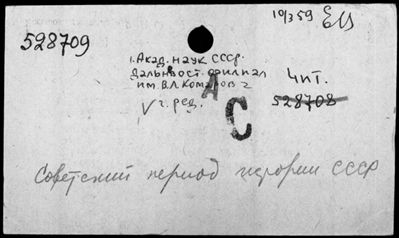 10/3 59
528709
1. Акад. наук СССР.
Дальневост. филиал
им. В.Л. Комарова
Чит.
528708
V г. ред.
АС
Советский период истории СССР